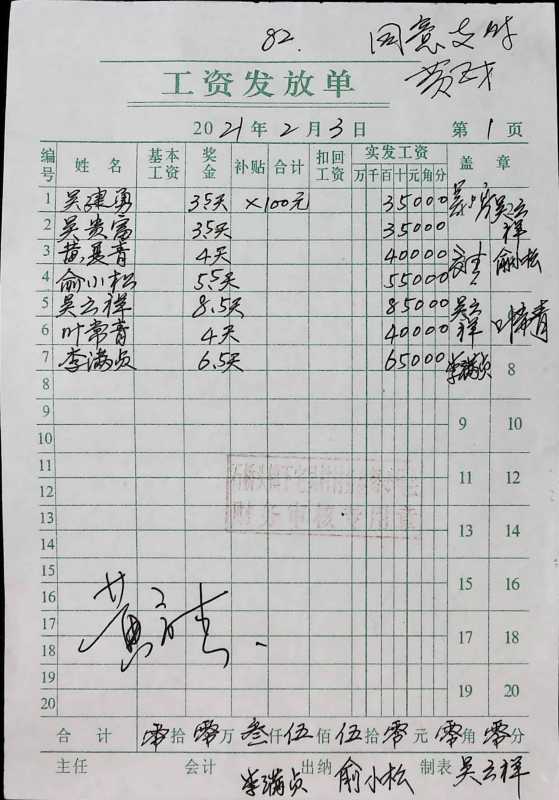 82.
同意支付
工资发放单
2021年2月3日 第1页
编号 姓名 基本工资 奖金 补贴 合计 扣回工资 实发工资 万千百十元角分 盖章
1 吴建勇 3.5天 ×100元 35000
2 吴贵富 3.5天 35000 吴云祥
3 黄夏青 4天 40000 俞小松
4 俞小松 5.5天 55000
5 吴云祥 8.5天 85000 吴云祥 叶常青
6 叶常青 4天 40000
7 李满贞 6.5天 65000 李满贞 8
8
9 9 10
10
11 11 12
12
13 13 14
14
15 15 16
16
17 17 18
18
19 19 20
20
财务审核专用章
合计 零拾零万叁仟伍佰伍拾零元零角零分
主任 会计 李满贞 出纳 俞小松 制表 吴云祥